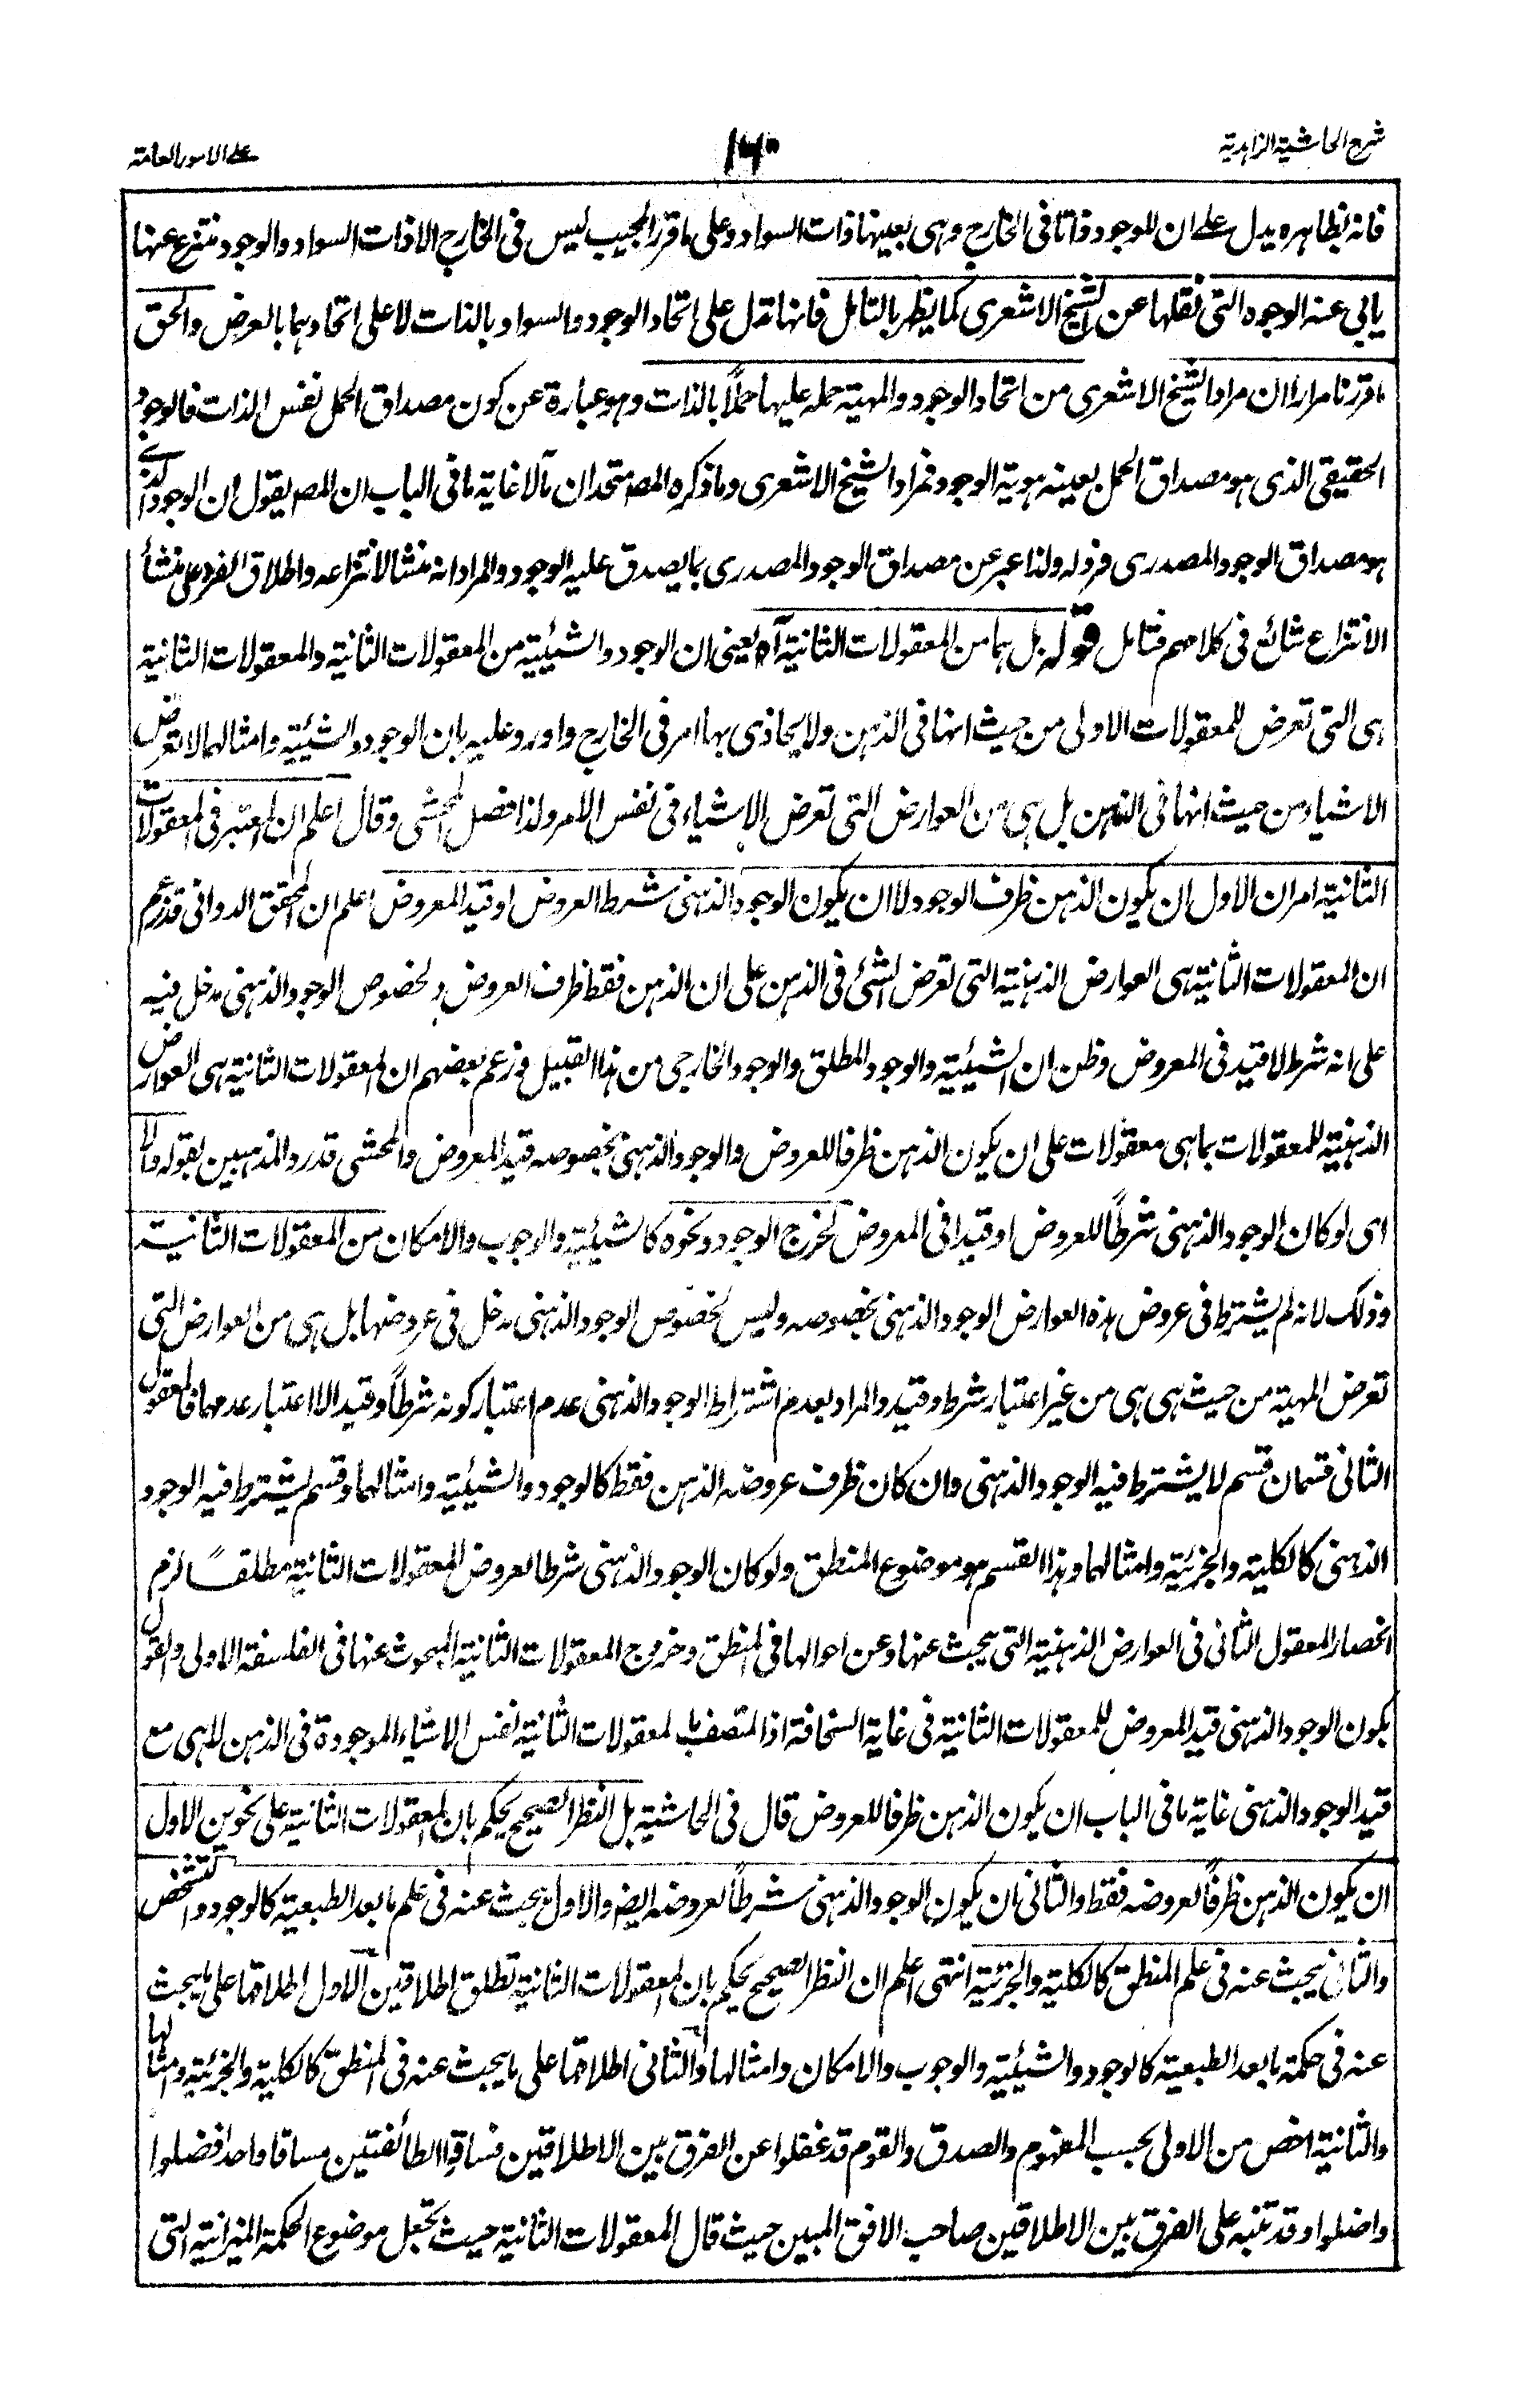 شرح الحاشیة الزاهدیة
۱۶۰
علی الامور العامة
فانه بظاهره یدل علی ان للوجود ذاتا فی الخارج وهی بعینها ذات السواد وعلی ما قرر المجیب لیس فی الخارج الا ذات السواد والوجود منتزع عنها
یابی عنه الوجوه التی نقلها عن الشیخ الاشعری کما یظهر بالتامل فانها تدل علی اتحاد الوجود والسواد بالذات لا علی اتحادهما بالعرض والحق
ما قررنا مرارا ان مراد الشیخ الاشعری من اتحاد الوجود والمهیة حمله علیها حملاً بالذات وهو عبارة عن کون مصداق الحمل نفس الذات فالوجود
الحقیقی الذی هو مصداق الحمل بعینه هویة الوجود فمراد الشیخ الاشعری وما ذکره المصـ متحدان مآلا غایة ما فی الباب ان المصـ یقول ان الوجود الذی
هو مصداق الوجود المصدری فرد له ولذا عبر عن مصداق الوجود المصدری بما یصدق علیه الوجود والمراد انه منشا لانتزاعه واطلاق الفرد علی منشأ
الانتزاع شائع فی کلامهم فتامل قوله بل هما من المعقولات الثانیة آه یعنی ان الوجود والشیئیة من المعقولات الثانیة والمعقولات الثانیة
هی التی تعرض للمعقولات الاولی من حیث انها فی الذهن ولا یحاذی بها امر فی الخارج واورد علیه بان الوجود والشیئیة وامثالهما لا تعرض
الاشیاء من حیث انها فی الذهن بل هی من العوارض التی تعرض الاشیاء فی نفس الامر ولذا فصل المحشی وقال اعلم ان المعتبر فی المعقولات
الثانیة امران الاول ان یکون الذهن ظرف الوجود لا ان یکون الوجود الذهنی شرط العروض او قید المعروض اعلم ان المحقق الدوانی قد زعم
ان المعقولات الثانیة هی العوارض الذهنیة التی تعرض الشئ فی الذهن علی ان الذهن فقط ظرف العروض ولخصوص الوجود الذهنی مدخل فیه
علی انه شرط لا قید فی المعروض وظن ان الشیئیة والوجود المطلق والوجود الخارجی من هذا القبیل وزعم بعضهم ان المعقولات الثانیة هی العوارض
الذهنیة للمعقولات بما هی معقولات علی ان یکون الذهن ظرفا للعروض والوجود الذهنی بخصوصه قید المعروض والمحشی قد رد المذهبین بقوله والا
ای لو کان الوجود الذهنی شرطاً للعروض او قیدا فی المعروض لخرج الوجود ونحوه کالشیئیة والوجوب والامکان من المعقولات الثانیة
وذلک لانه لم یشترط فی عروض هذه العوارض الوجود الذهنی بخصوصه ولیس لخصوص الوجود الذهنی مدخل فی عروضها بل هی من العوارض التی
تعرض المهیة من حیث هی هی من غیر اعتبار شرط وقید والمراد بعدم اشتراط الوجود الذهنی عدم اعتبار کونه شرطاً وقیدا لا اعتبار عدمهما فالمعقول
الثانی قسمان قسم لا یشترط فیه الوجود الذهنی وان کان ظرف عروضه الذهن فقط کالوجود والشیئیة وامثالهما وقسم یشترط فیه الوجود
الذهنی کالکلیة والجزئیة وامثالهما وهذا القسم هو موضوع المنطق ولو کان الوجود الذهنی شرطا لعروض المعقولات الثانیة مطلقاً لزم
انحصار المعقول الثانی فی العوارض الذهنیة التی یبحث عنها وعن احوالها فی المنطق وخروج المعقولات الثانیة المبحوث عنها فی الفلسفة الاولی والقول
بکون الوجود الذهنی قید المعروض للمعقولات الثانیة فی غایة السخافة اذ المتصف بالمعقولات الثانیة نفس الاشیاء الموجودة فی الذهن لا هی مع
قید الوجود الذهنی غایة ما فی الباب ان یکون الذهن ظرفا للعروض قال فی الحاشیة بل النظر الصحیح یحکم بان المعقولات الثانیة علی نحوین الاول
ان یکون الذهن ظرفاً لعروضه فقط والثانی ان یکون الوجود الذهنی شرطاً لعروضه ایضـ والاول یبحث عنه فی علم ما بعد الطبعیة کالوجود والتشخص
والثانی یبحث عنه فی علم المنطق کالکلیة والجزئیة انتهی اعلم ان النظر الصحیح یحکم بان المعقولات الثانیة تطلق اطلاقین الاول اطلاقها علی ما یبحث
عنه فی حکمة ما بعد الطبعیة کالوجود والشیئیة والوجوب والامکان وامثالها والثانی اطلاقها علی ما یبحث عنه فی المنطق کالکلیة والجزئیة وامثالها
والثانیة اخص من الاولی بحسب المفهوم والصدق والقوم قد غفلوا عن الفرق بین الاطلاقین فساقوا الطائفتین مساقا واحدا فضلوا
واضلوا وقد تنبه علی الفرق بین الاطلاقین صاحب الافق المبین حیث قال المعقولات الثانیة حیث تجعل موضوع الحکمة المیزانیة التی